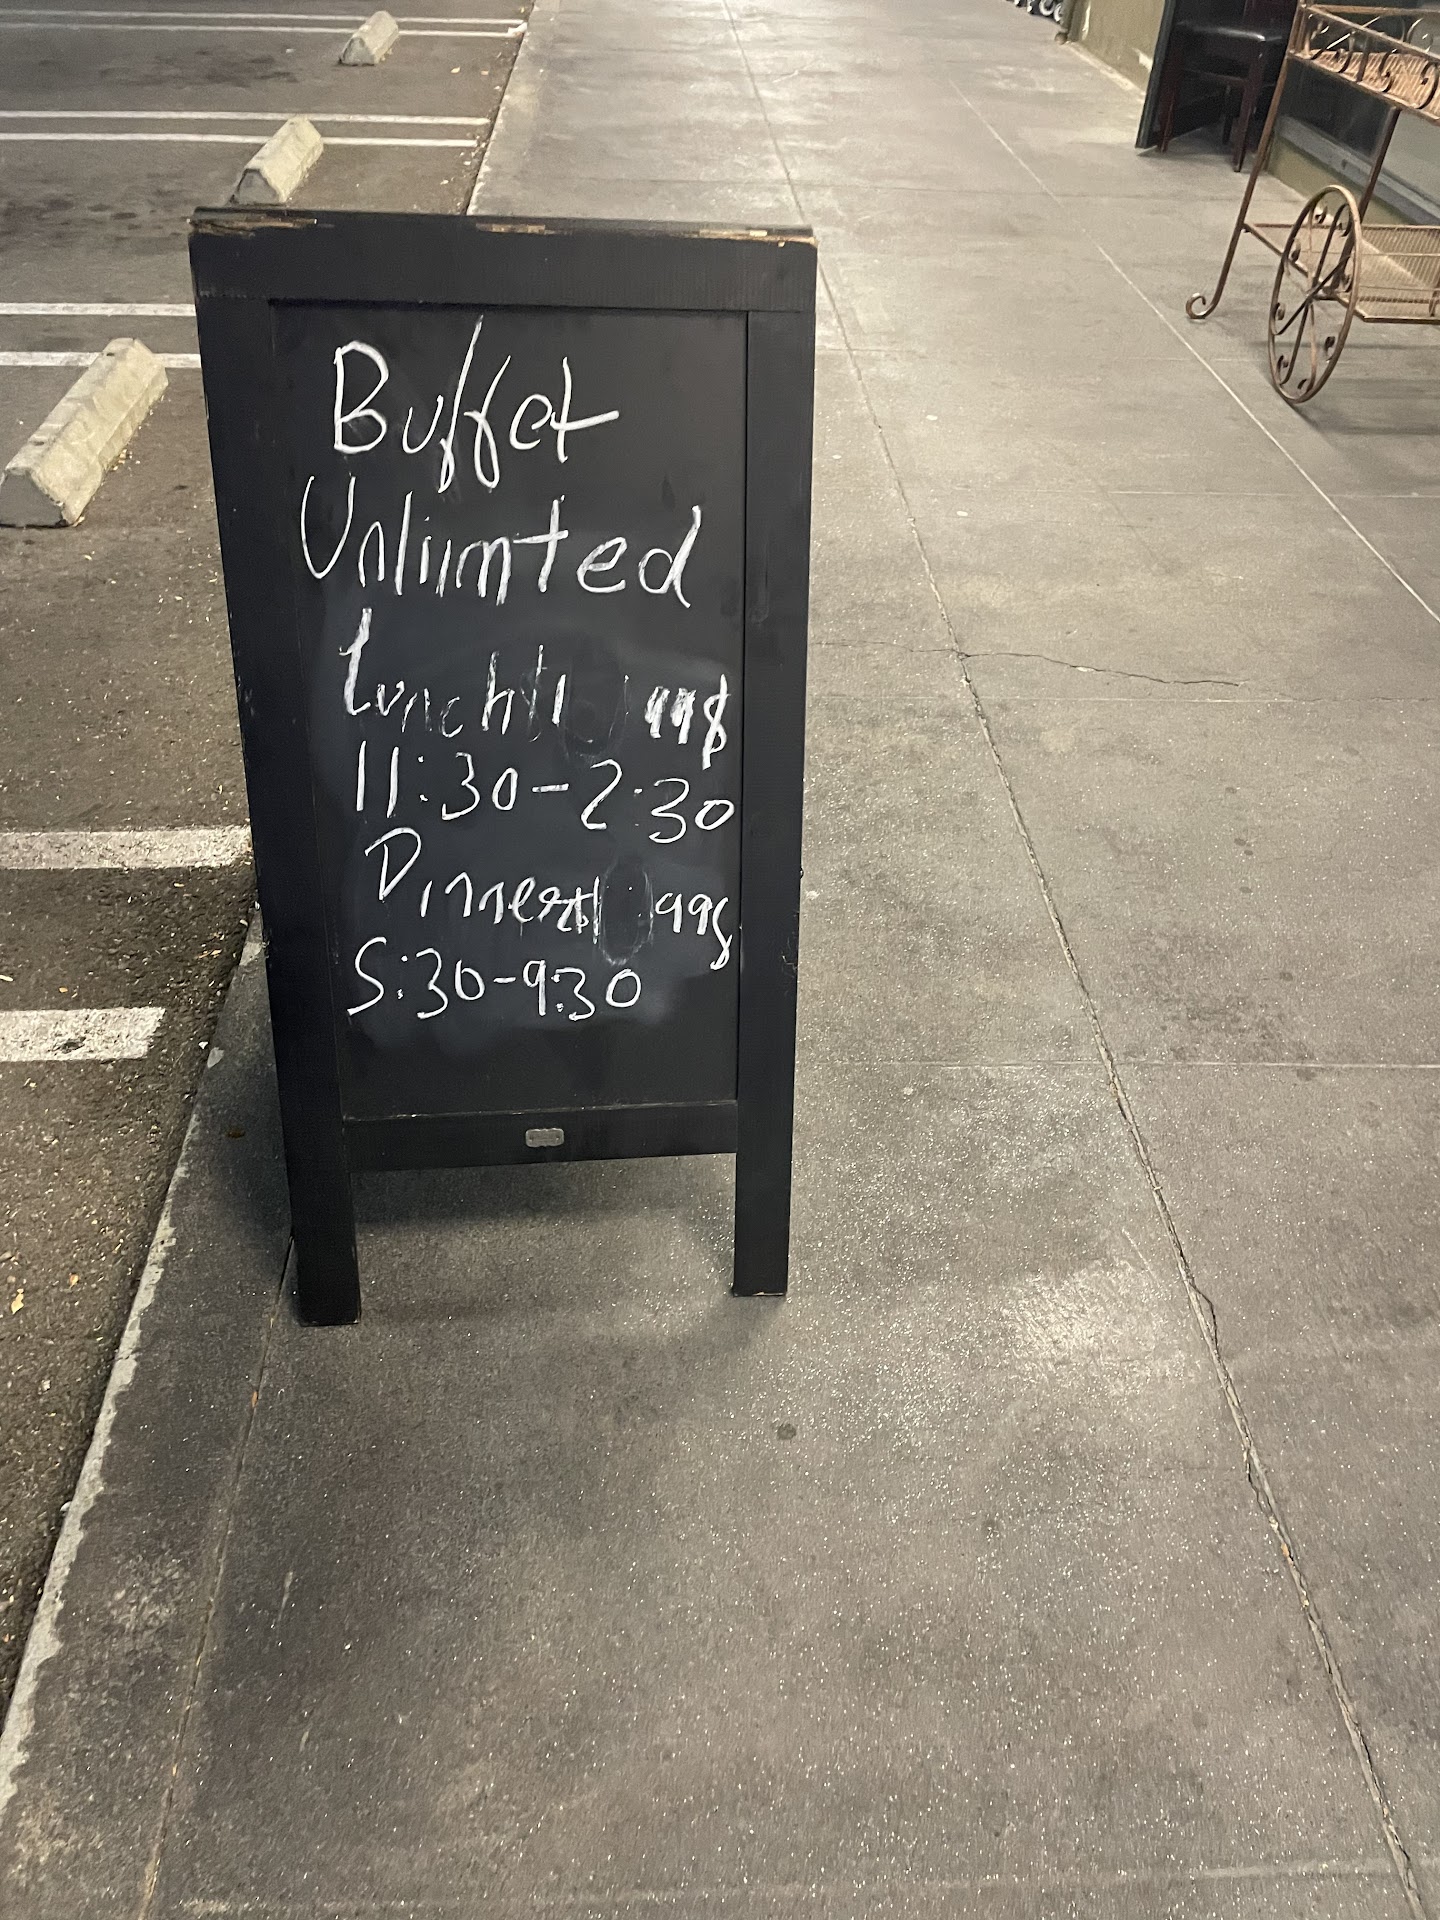 Buffet
Unliimted
Lunch
11:30-2:30
Dinner
5:30-9:30